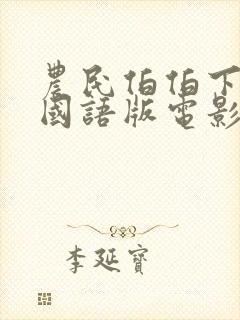 農民伯伯下
國語版電影
李延寶